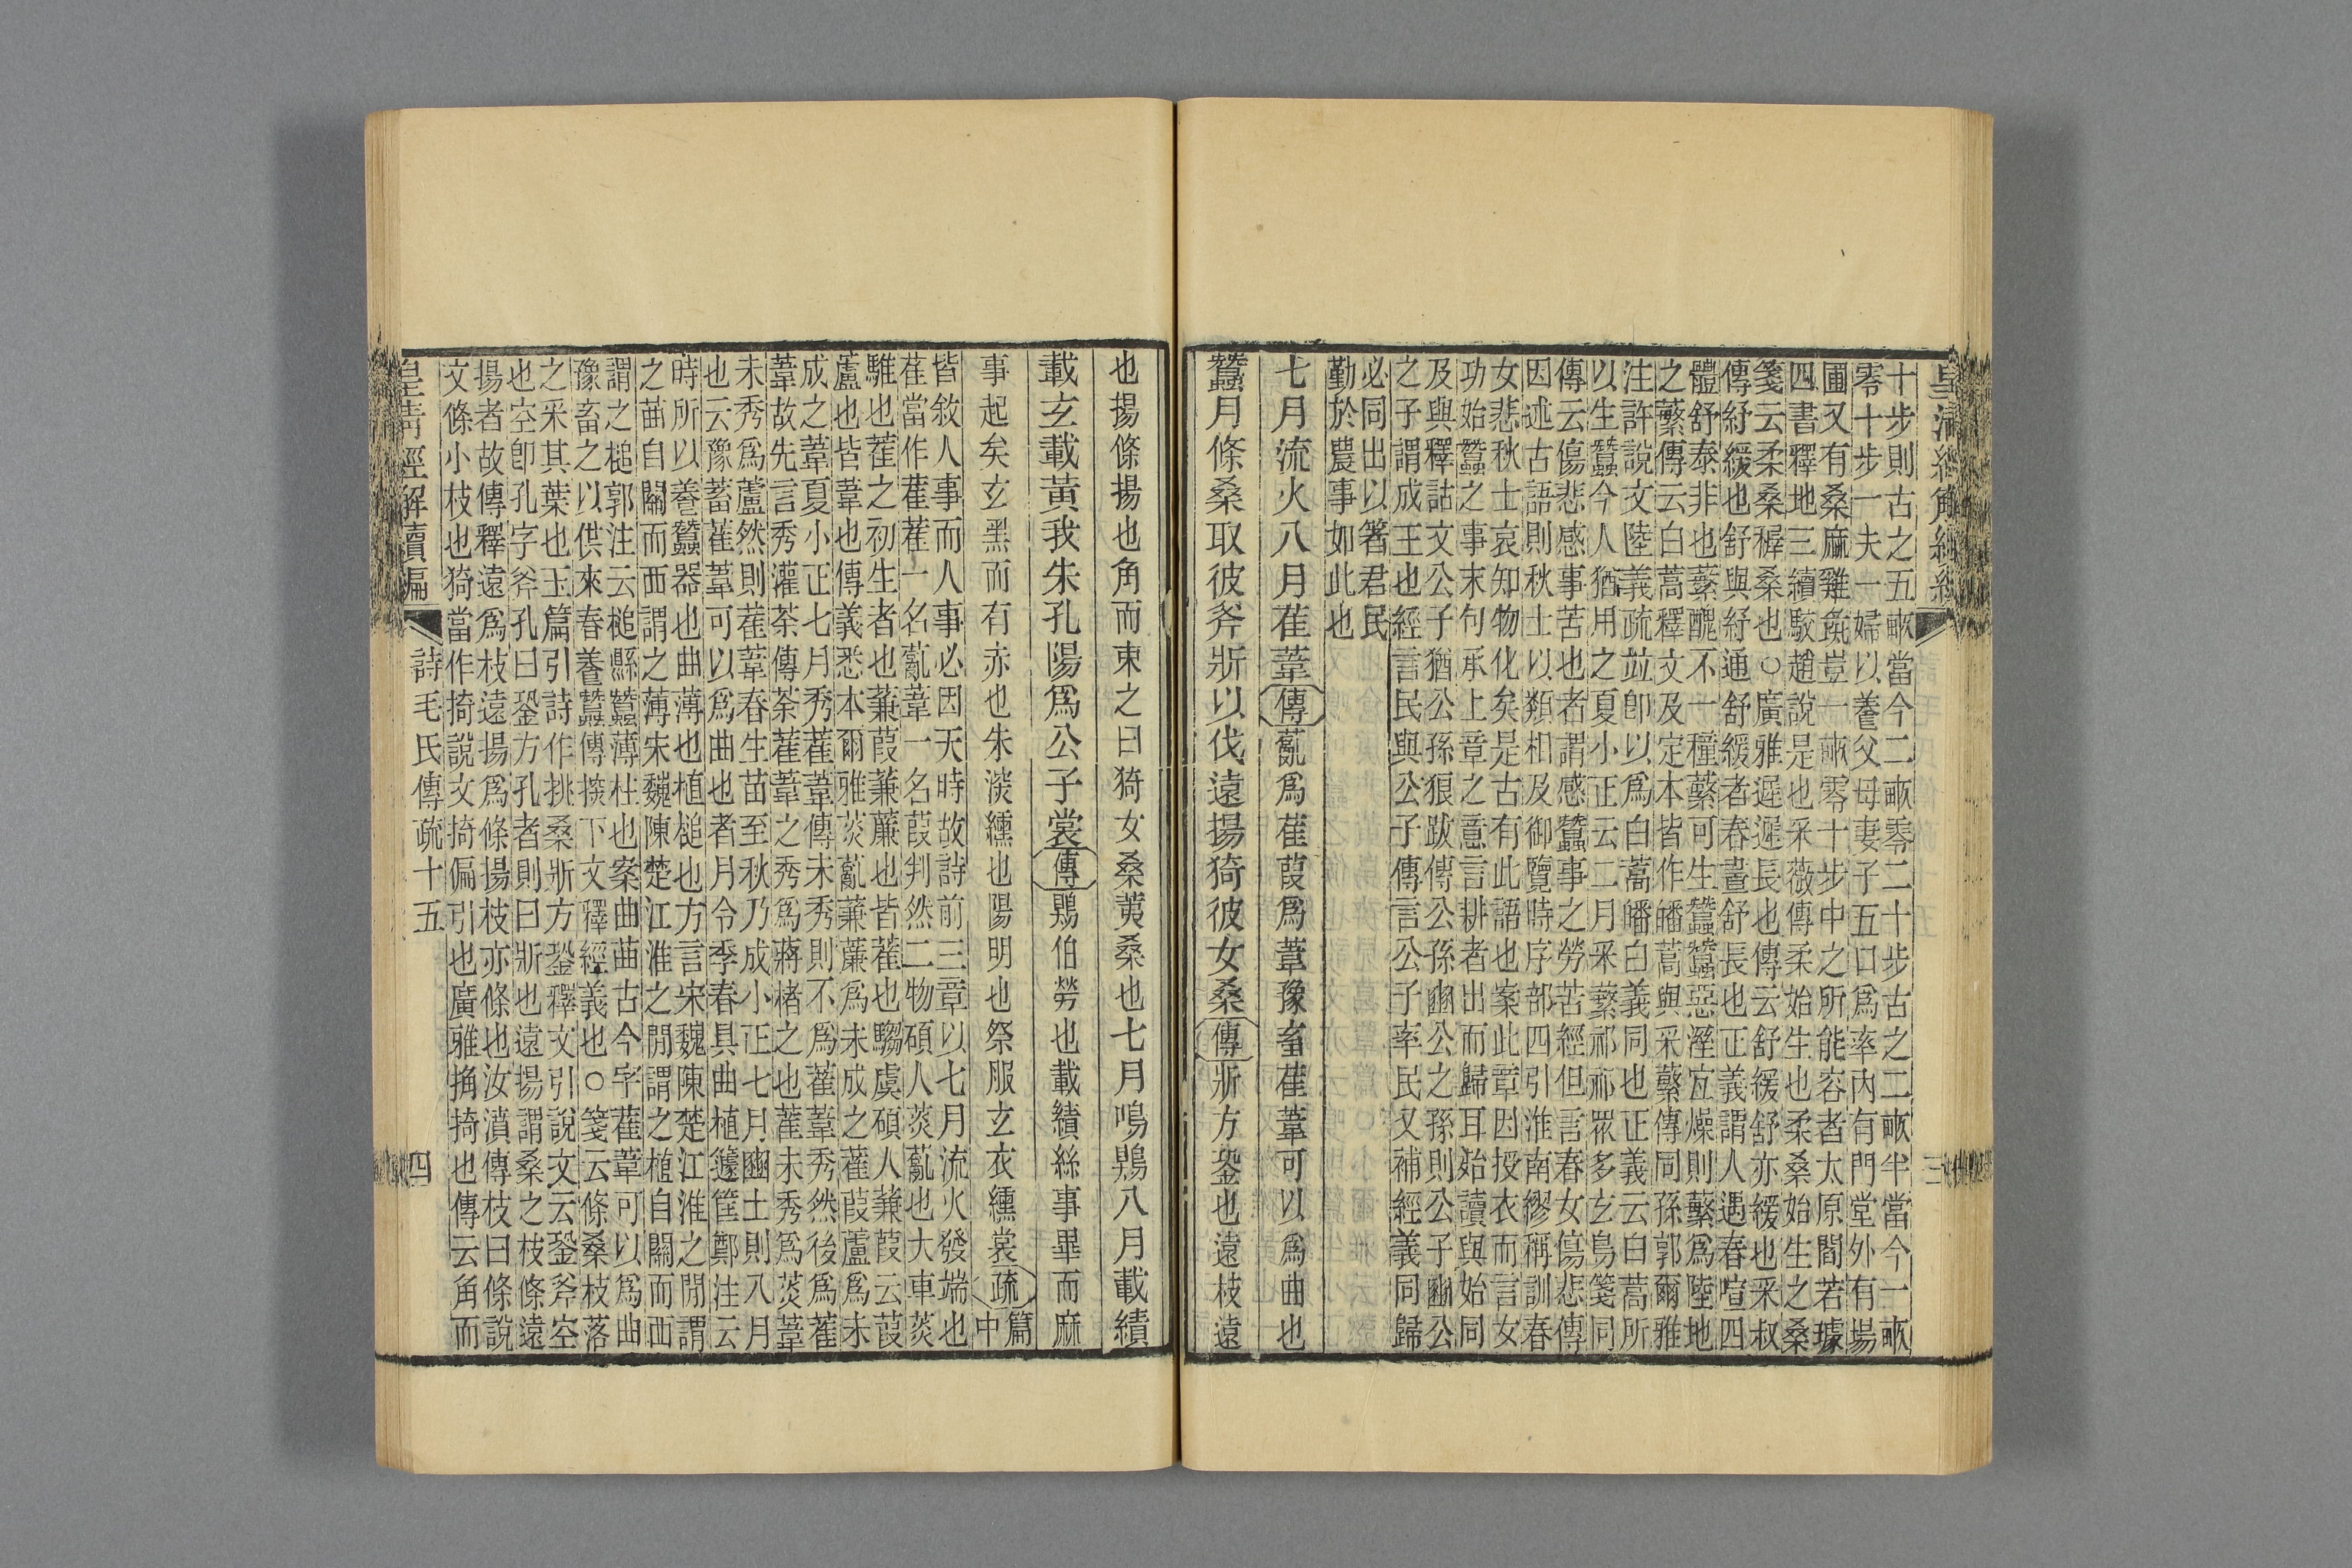 十步則古之五畝當今二畝零二十步古之二畝半當今一畝
零十步一夫一婦以養父母妻子五口爲率內有門堂外有場
圃又有桑麻雞豈一畝零十步中之所能容者太原閻若璩
四書釋地三續駁趙說是也采薇傳柔始生也柔桑始生之桑
箋云柔桑穉桑也○廣雅遲遲長也傳云舒緩舒亦緩也采叔
傳紓緩也舒與紓通舒緩者春晝舒長也正義謂人遇春暄四
體舒泰非也蘩醜不一種蘩可生蠶蠶惡溼宜燥則蘩爲陸地
之蘩傳云白蒿釋文及定本皆作皤蒿與采蘩傳同孫郭爾雅
注許說文陸義疏竝卽以爲白蒿皤白義同也正義云白蒿所
以生蠶今人猶用之夏小正云二月采蘩祁祁眾多玄鳥箋同
傳云傷悲感事苦也者謂感蠶事之勞苦經但言春女傷悲傳
因述古語則秋士以類相及御覽時序部四引淮南繆稱訓春
女悲秋士哀知物化矣是古有此語也案此章因授衣而言女
功始蠶之事末句承上章之意言耕者出而歸耳始讀與始同
及與釋詁文公子猶公孫狼跋傳公孫豳公之孫則公子豳公
之子謂成王也經言民與公子傳言公子率民又補經義同歸
必同出以箸君民
勤於農事如此也
七月流火八月萑葦傳薍爲萑葭爲葦豫畜萑葦可以爲曲也
蠶月條桑取彼斧斨以伐遠揚猗彼女桑傳斨方銎也遠枝遠
三
也揚條揚也角而束之曰猗女桑荑桑也七月鳴鵙八月載績
載玄載黃我朱孔陽爲公子裳傳鵙伯勞也載績絲事畢而麻
事起矣玄黑而有赤也朱深纁也陽明也祭服玄衣纁裳疏篇中
皆敘人事而人事必因天時故詩前三章以七月流火發端也
萑當作雚雚一名薍葦一名葭判然二物碩人菼薍也大車菼
騅也雚之初生者也蒹葭蒹薕也皆雚也騶虞碩人蒹葭云葭
蘆也皆葦也傳義悉本爾雅菼薍蒹薕爲未成之雚葭蘆爲未
成之葦夏小正七月秀雚葦傳未秀則不爲雚葦秀然後爲雚
葦故先言秀灌荼傳荼雚葦之秀爲蔣楮之也雚未秀爲菼葦
未秀爲蘆然則雚葦春生苗至秋乃成小正七月豳土則八月
也云豫蓄雚葦可以爲曲也者月令季春具曲植籧筐鄭注云
時所以養蠶器也曲薄也植槌也方言宋魏陳楚江淮之閒謂
之䒼自關而西謂之薄宋魏陳楚江淮之閒謂之植自關而西
謂之槌郭注云槌縣蠶薄柱也案曲䒼古今字雚葦可以爲曲
豫畜之以供來春養蠶傳探下文釋經義也○箋云條桑枝落
之采其葉也玉篇引詩作挑桑斨方銎釋文引說文云銎斧空
也空卽孔字斧孔曰銎方孔者則曰斨也遠揚謂桑之枝條遠
揚者故傳釋遠爲枝遠揚爲條揚枝亦條也汝濆傳枝曰條說
文條小枝也猗當作掎說文掎偏引也廣雅捔掎也傳云角而
皇清經解續編 詩毛氏傳疏十五 四